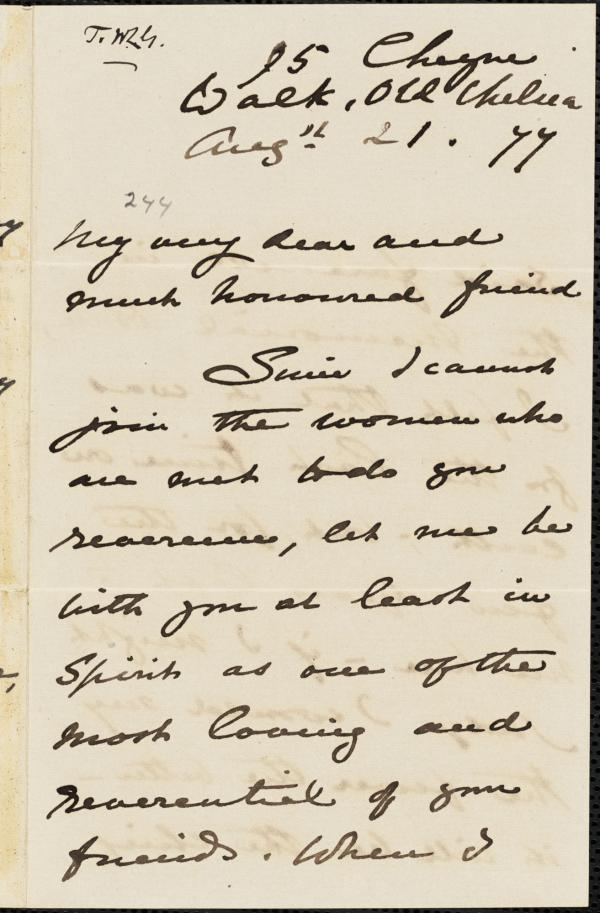 T.W.H.
95 Cheyne
Walk, Old Chelsea
Augst 21. 77
244
My very dear and
much honoured friend
Since I cannot
join the women who
are met to do you
reverence, let me be
with you at least in
spirit as one of the
most loving and
reverential of your
friends. When I